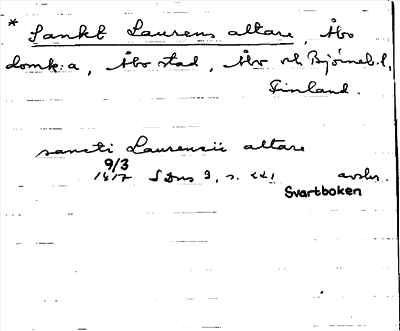 * Sankt Laurens altare, Åbo
domk:a, Åbo stad, Åbo och Björneb.l,
Finland.
sancti Laurencii altare
9/3
1417 SDns 3, s. 221 avskr.
Svartboken